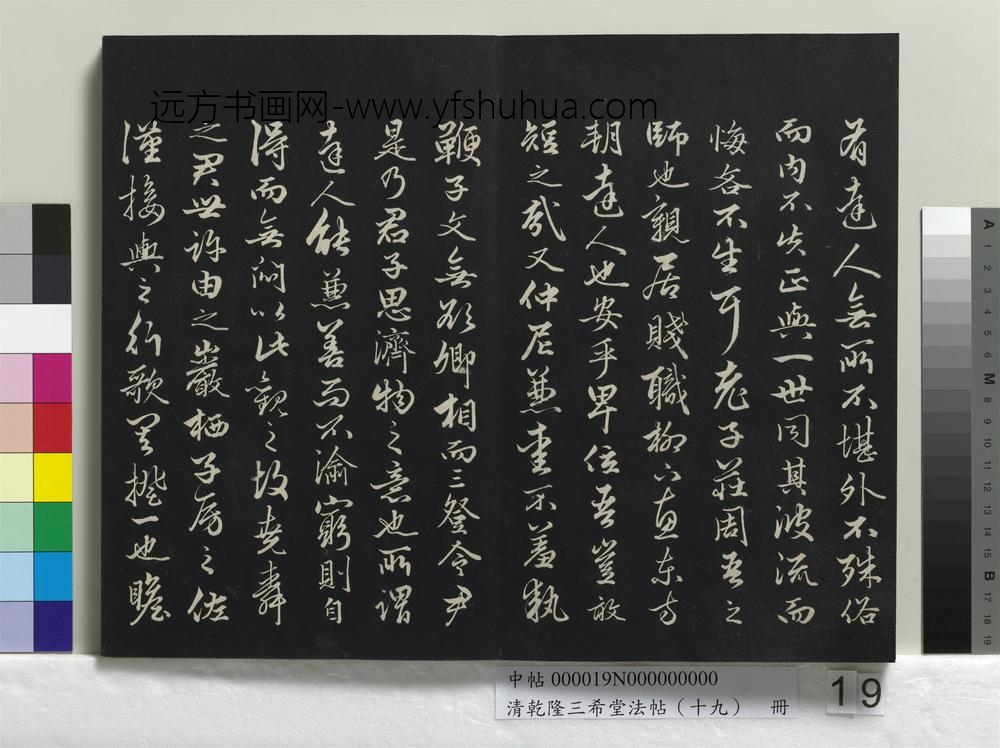 远方书画网-www.yfshuhua.com
有達人無所不堪外不殊俗
而内不失正與一世同其波流而
悔吝不生耳老子莊周吾之
師也親居賤職柳下惠東方
朝達人也安乎卑位吾豈敢
短之哉又仲尼兼愛不羞執
鞭子文無欲卿相而三登令尹
是乃君子思濟物之意也所謂
達人能兼善而不渝窮則自
得而無悶以此觀之故堯舜
之君世許由之巖栖子房之佐
漢接輿之行歌其揆一也瞻
中帖 000019N000000000
清乾隆三希堂法帖（十九） 冊
19
A 1 2 3 4 5 6 M 8 9 10 11 12 13 14 15 B 17 18 19